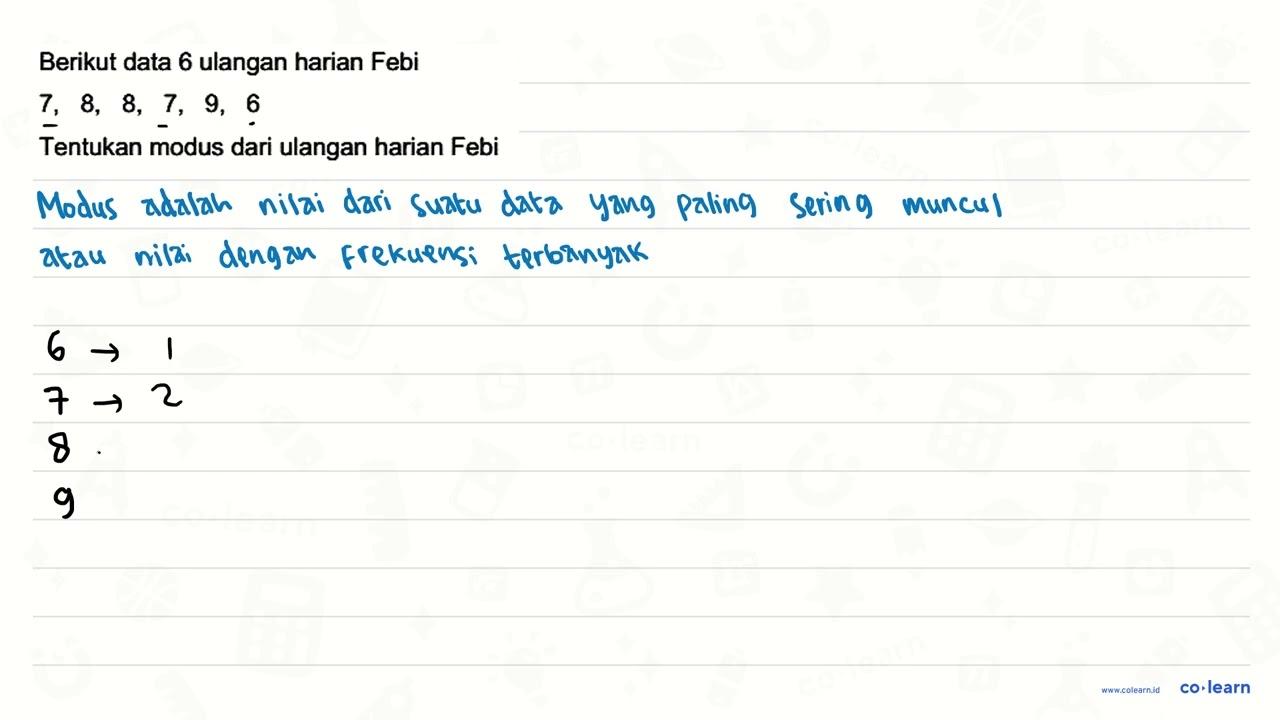 Berikut data 6 ulangan harian Febi
7, 8, 8, 7, 9, 6
Tentukan modus dari ulangan harian Febi
Modus adalah nilai dari suatu data yang paling sering muncul
atau nilai dengan frekuensi terbanyak
6 → 1
7 → 2
8
9
co·learn
co·learn
co·learn
co·learn
co·learn
www.colearn.id co·learn